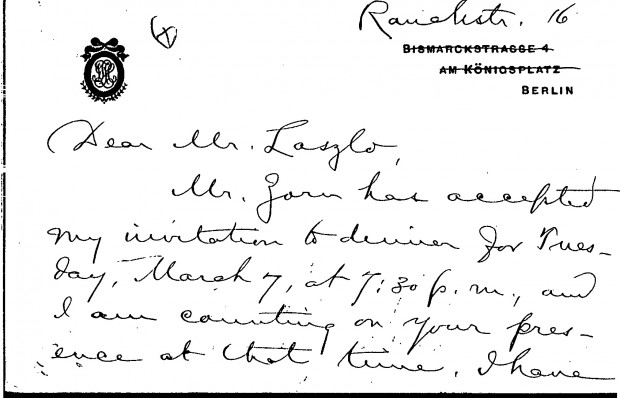 Rauchstr. 16
BISMARCKSTRASSE 4
AM KÖNIGSPLATZ
BERLIN
Dear Mr. Laszlo,
Mr. Zorn has accepted
my invitation to dinner for Tues-
day, March 7, at 7:30 p.m., and
I am counting on your pres-
ence at that time. I have